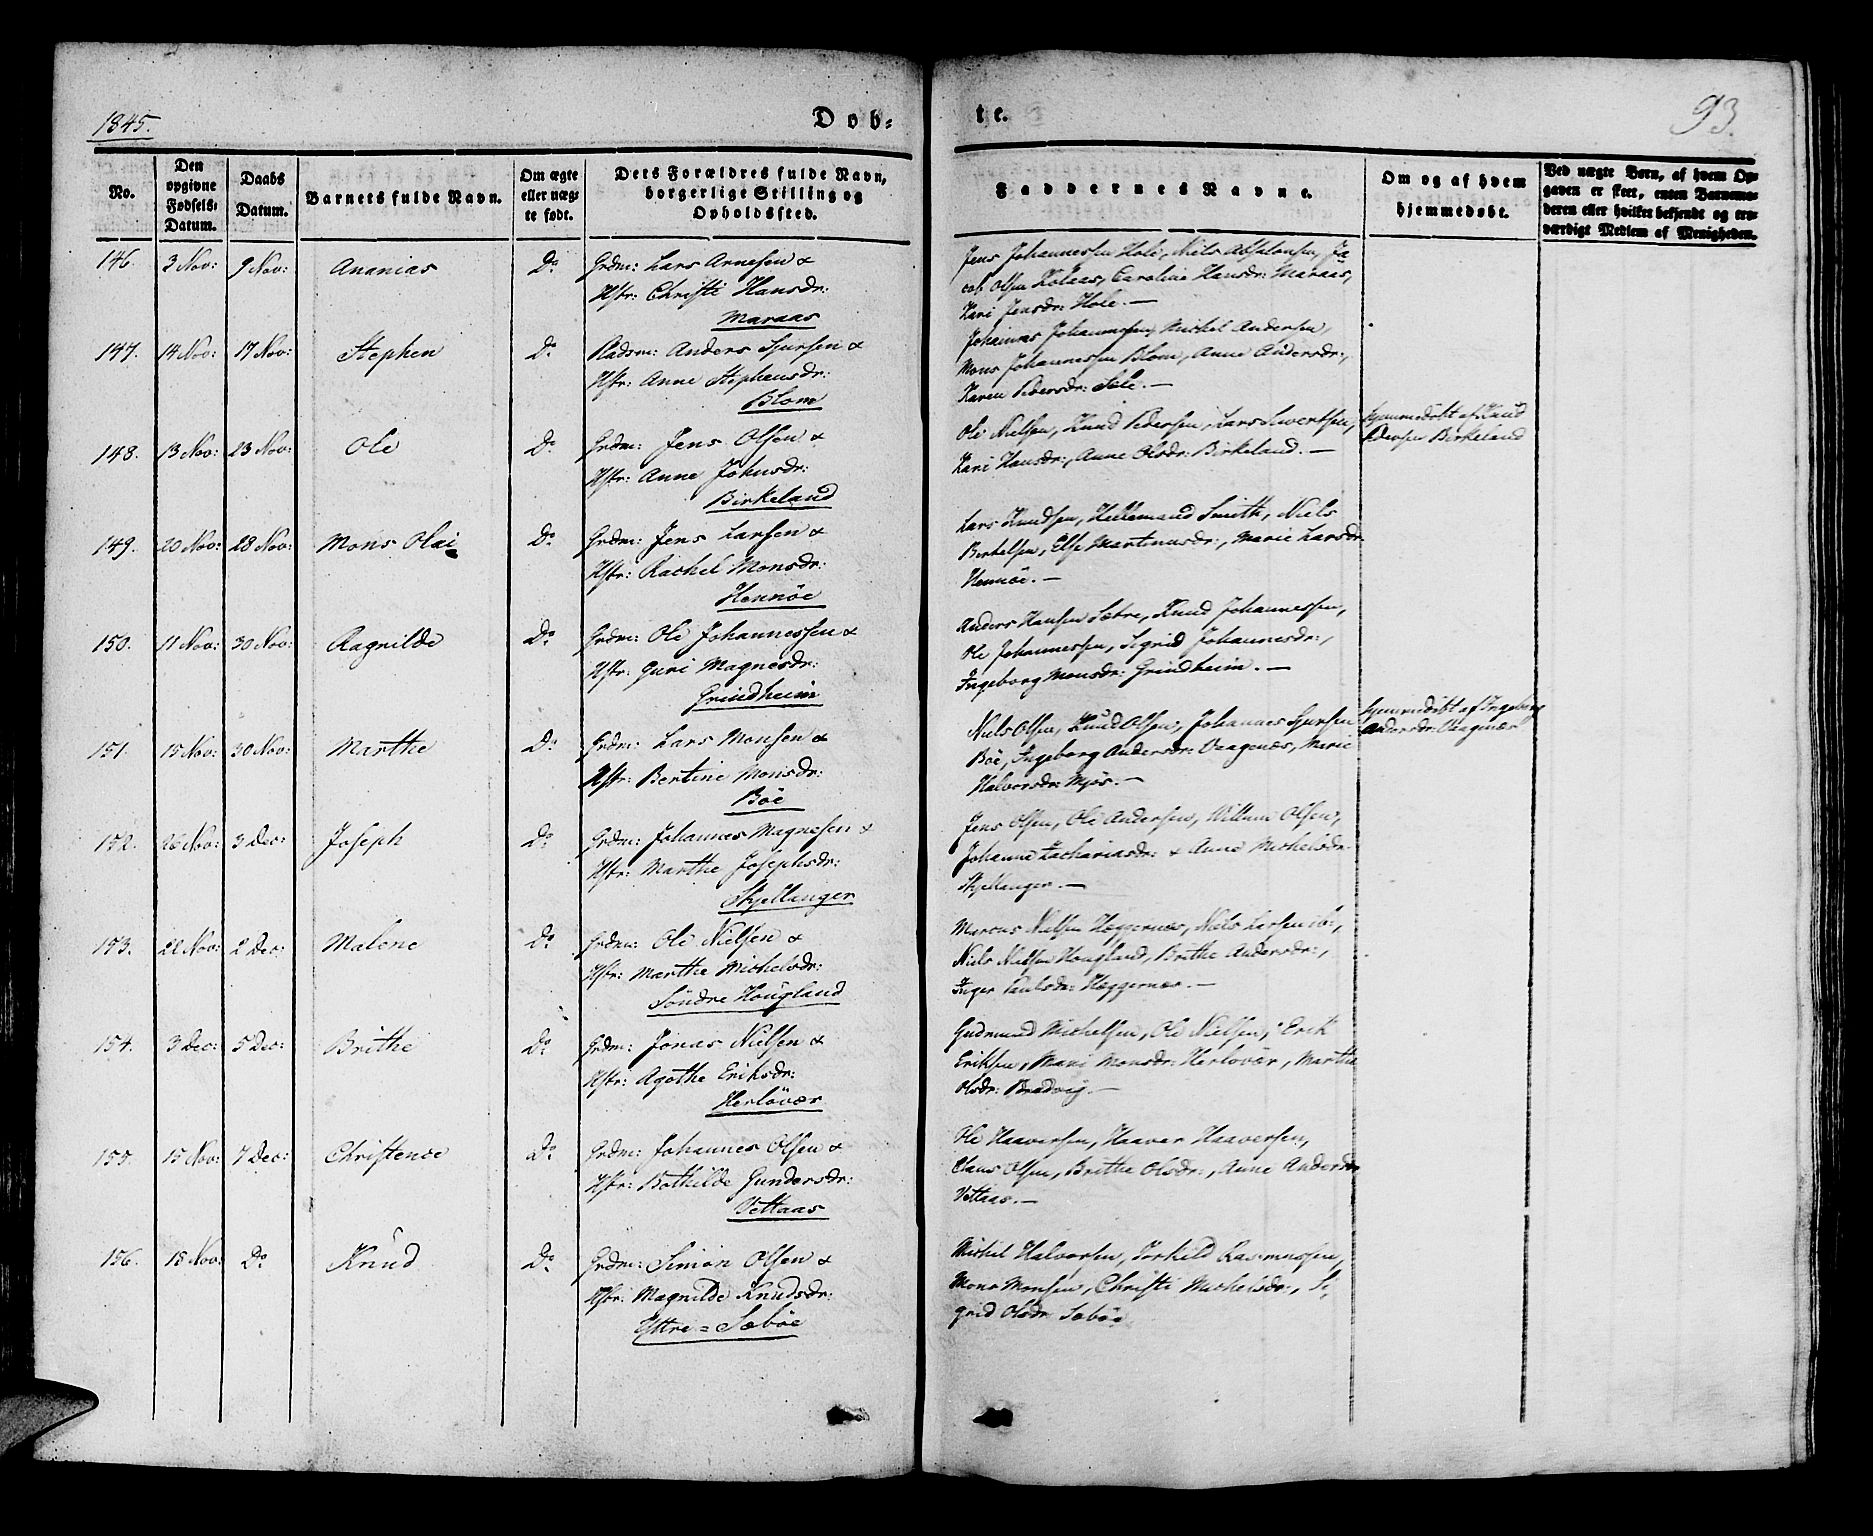 1845.
Døb-
te.
93.
No.
Den opgivne Fødsels-Datum.
Daabs Datum.
Barnets fulde Navn.
Om ægte eller uægte født.
Dets Forældres fulde Navn, borgerlige Stilling og Opholdssted.
Faddernes Navne.
Om og af hvem hjemmedøbt.
Ved uægte Børn, af hvem Opgaven er skeet, enten Barnemoderen eller hvilket bekjendt og troværdigt Medlem af Menigheden.
146. 3 Nov: 9 Nov: Ananias Do Grdm: Lars Arnesen &
Hstr: Christi Hansdr:
Maraas
Jens Johannessen Hole, Niels Absalonsen, Ja
cob Olsen Kolaas, Caroline Hansdr: Maraas,
Kari Jensdr: Hole. —
147. 14 Nov: 17 Nov: Stephen Do Pladsm: Anders Sjursen &
Hstr: Anne Stephensdr:
Blom
Johannes Johannessen, Mickel Andersen,
Mons Johannessen Blom, Anne Andersdr:,
Karen Pedersdr: Sæle. —
148. 13 Nov: 23 Nov: Ole Do Grdm: Jens Olsen &
Hstr: Anne Johnsdr:
Birkeland
Ole Nielsen, Knud Pedersen, Lars Sivertsen,
Kari Hansdr:, Anne Olsdr: Birkeland. —
hjemmedøbt af Knud
Pedersen Birkeland
149. 20 Nov: 28 Nov: Mons Olai Do Grdm: Jens Larsen &
Hstr: Rachel Monsdr:
Hennöe
Lars Knudsen, Hillemand Smith, Niels
Berhelsen, Else Martinusdr:, Marie Larsdr
Hennöe. —
150. 11 Nov: 30 Nov: Ragnilde Do Grdm: Ole Johannessen &
Hstr: Guri Magnesdr:
Grindheim
Anders Hansen Sætre, Knud Johannessen,
Ole Johannessen, Sigrid Johannesdr:,
Ingeborg Monsdr: Grindheim. —
151. 15 Nov: 30 Nov: Marthe Do Grdm: Lars Monsen &
Hstr: Bertine Monsdr:
Böe
Niels Olsen, Knud Olsen, Johannes Sjursen
Böe, Ingeborg Andersdr: Vaagenæs, Marie
Halvorsdr: Mjös. —
hjemmedöbt af Ingeborg
Andersdr: Vaagenæs
152. 26 Nov: 3 Dec: Joseph Do Grdm: Johannes Magnesen &
Hstr: Marthe Josephsdr:
Skjellanger
Jens Olsen, Ole Andersen, Willum Olsen,
Johanne Zachariasdr: & Anne Michelsdr
Skjellanger. —
153. 22 Nov: 2 Dec: Malene Do Grdm: Ole Nielsen &
Hstr: Marthe Michelsdr:
Söndre Hougland
Marcus Nielsen Hæggernæs, Niels Larsen ib:,
Niels Nielsen Hougland, Brithe Andersdr:,
Inger Paulsdr: Hæggernæs. —
154. 3 Dec: 5 Dec: Brithe Do Grdm: Jonas Nielsen &
Hstr: Agathe Eriksdr:
Herlövær
Gudmund Michelsen, Ole Nielsen, Erik
Eriksen, Mari Monsdr: Herlövær, Marthe
Olsdr: Bradvig. —
155. 15 Nov: 7 Dec: Christence Do Grdm: Johannes Olsen &
Hstr: Bothilde Gundersdr:
Vettaas
Ole Haaversen, Haaver Haaversen,
Claus Olsen, Brithe Olsdr:, Anne Andersdr
Vettaas. —
156. 15 Nov: Do Knud Do Grdm: Simon Olsen &
Hstr: Magnilde Knudsdr:
Yttre = Sæböe
Mickel Halvorsen, Torkild Rasmussen,
Mons Monsen, Christi Michelsdr:, Si
grid Olsdr Sæböe.